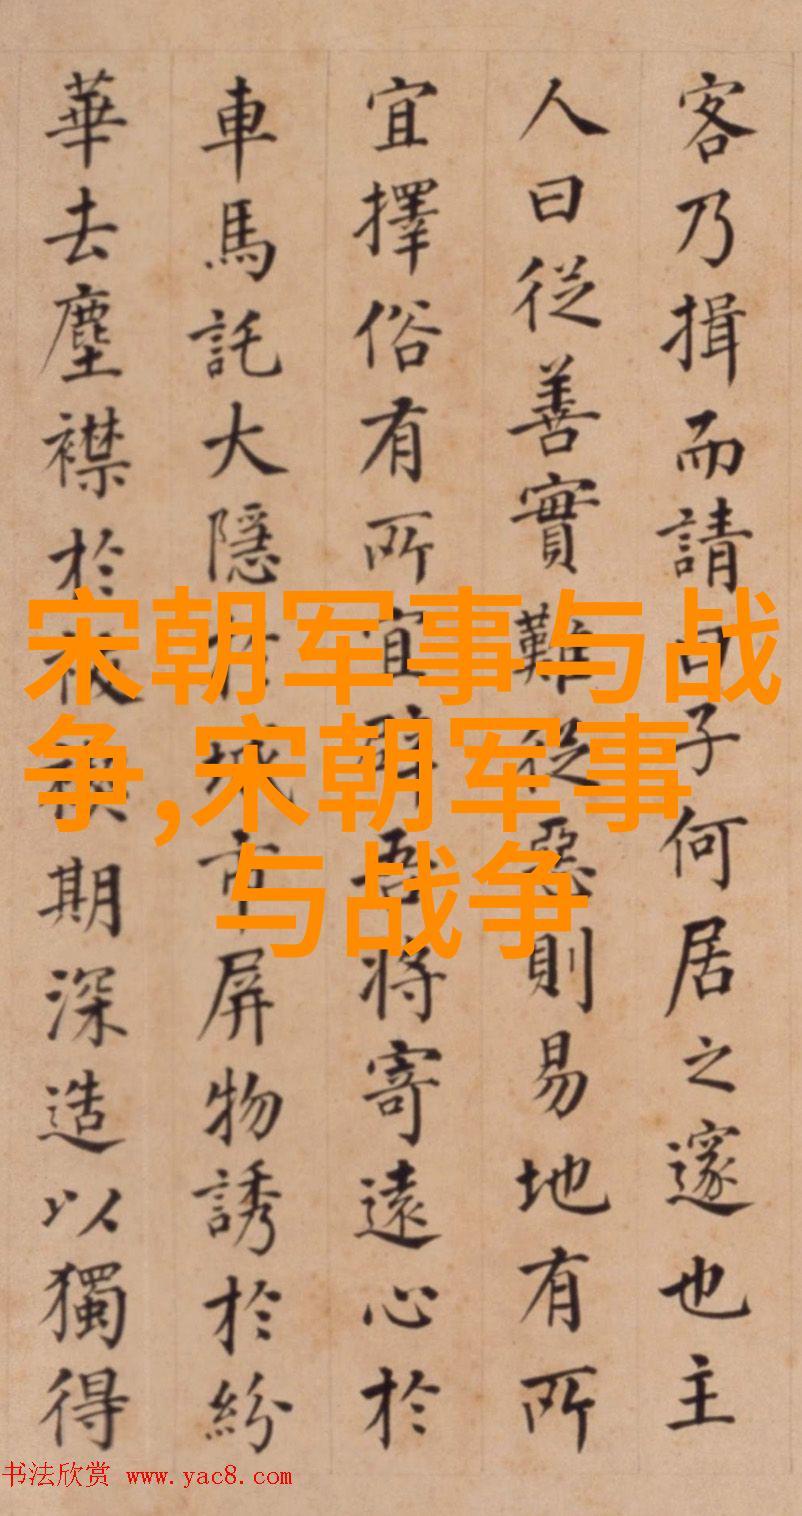 客乃揖而請曰子何居之邃也主
人曰從善實難從惡則易地有所
宜擇俗有所宜辟吾將寄遠心於
車馬託大隱於城市屏物誘於紛
華去塵襟於被襖期深造以獨得
宋朝军事与战
争,宋朝军事
与战争
书法欣赏 www.yac8.com